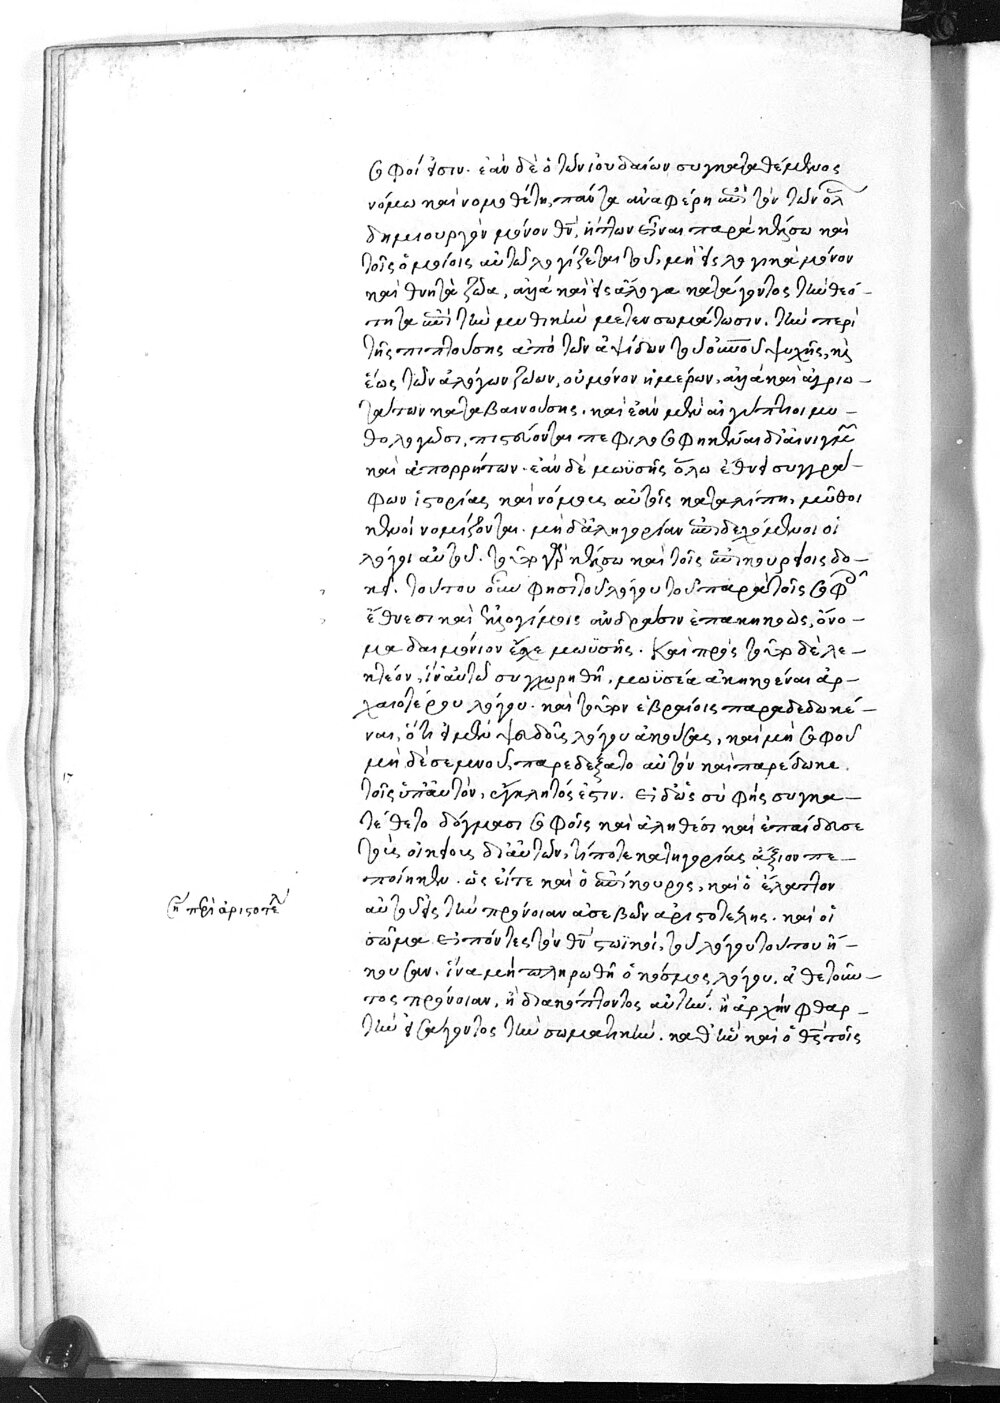 σοφοί εἰσιν. ἐὰν δὲ ὁ τῶν ἰουδαίων συγκατατιθέμενος
νόμω καὶ νομοθέτη, πάντα ἀναφέρη ἐπὶ τὸν τῶν ὅλ
δημιουργὸν μόνον θν, ἥττων εἶναι παρὰ κέλσω καὶ
τοῖς ὁμοίοις αὐτῶ λογίζεται τοῦ, μὴ εἰς λογικὰ μόνον
καὶ θνητὰ ζῶα, ἀλλὰ καὶ εἰς ἄλογα κατάγοντος τὴν θεό-
τητα ἐπὶ τὴν μυθικὴν μετενσωμάτωσιν. τὴν περὶ
τῆς πιπτούσης ἀπὸ τῶν ἁψίδων τοῦ οὐνοῦ ψυχῆς, καὶ
ἕως τῶν ἀλόγων ζώων, οὐ μόνον ἡμέρων, ἀλλὰ καὶ ἀγριω-
τάτων καταβαινούσης. καὶ ἐὰν μὲν αἰγύπτιοι μυ-
θολογῶσι, πιστεύονται πεφιλοσοφηκέναι δι' αἰνιγμ
καὶ ἀπορρήτων. ἐὰν δὲ μωϋσῆς ὅλω ἔθνει συγγρά-
φων ἱστορίας καὶ νόμους αὐτοῖς καταλίπη, μῦθοι
κενοὶ νομίζονται. μηδ' ἀλληγορίαν ἐπιδεχόμενοι οἱ
λόγοι αὐτοῦ. τοῦτο γὰρ κέλσω καὶ τοῖς ἐπικουρείοις δο-
κεῖ. τούτου οὖν φησι τοῦ λόγου τοῦ παρὰ τοῖς σοφ
ἔθνεσι καὶ ἐλλογίμοις ἀνδράσιν ἐπακηκοὼς, ὄνο-
μα δαιμόνιον ἔσχε μωϋσῆς. καὶ πρὸς τοῦτο δὲ λε-
κτέον, ἵν' αὐτῶ συγχωρηθῆ, μωϋσέα ἀκηκοέναι ἀρ-
χαιοτέρου λόγου. καὶ τοῦτον ἑβραίοις παραδεδωκέ-
ναι, ὅτι εἰ μὲν ψευδοῦς λόγου ἀκούσας, καὶ μὴ σοφοῦ
μηδὲ σεμνοῦ, παρεδέξατο αὐτὸν καὶ παρέδωκε
τοῖς ὑπ' αὐτὸν, ἔγκλητός ἐστιν. εἰ δ' ὡς σὺ φὴς συγκα-
τέθετο δόγμασι σοφοῖς καὶ ἀληθέσι καὶ ἐπαίδευσε
τοὺς οἰκείους δι' αὐτῶν, τί ποτε κατηγορίας ἄξιον πε-
ποίηκεν. ὡς εἴθε καὶ ὁ ἐπίκουρος, καὶ ὁ ἔλαττον
αὐτοῦ εἰς τὴν πρόνοιαν ἀσεβῶν ἀριστοτέλης. καὶ οἱ
σῶμα εἰπόντες τὸν θν στωϊκοὶ, τοῦ λόγου τούτου ἤ-
κουσαν. ἵνα μὴ πληρωθῆ ὁ κόσμος λόγου, ἀθετοῦν-
τος πρόνοιαν, ἢ διακόπτοντος αὐτὴν. ἢ ἀρχὴν φθαρ-
τὴν εἰσάγοντος τὴν σωματικὴν. καθ' ἣν καὶ ὁ θς τοῖς
ση περὶ ἀριστοτέλ